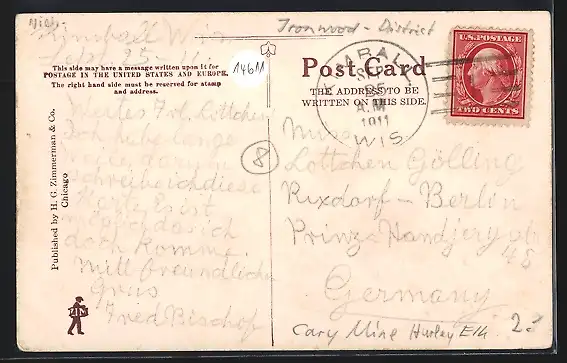 Mich.
Ironwood - District
Kimball Wis
Sept 25
14611
This side may have a message written upon it for
POSTAGE IN THE UNITED STATES AND EUROPE.
The right hand side must be reserved for stamp
and address.
Post Card
THE ADDRESS TO BE
WRITTEN ON THIS SIDE.
SEP
25
A.M.
1911
WIS
U.S. POSTAGE
TWO CENTS
Published by H. G. Zimmerman & Co.
Chicago
Frl. Lottchen
Ich habe lange
schreibe ich diese
Karte
doch komme.
Mitt freundlichen
Grus
Fred Bischof
8
Miss
Lottchen Gölling
Rixdorf - Berlin
Prinz Handjery
48
Germany
Cary Mine Hurley Elk